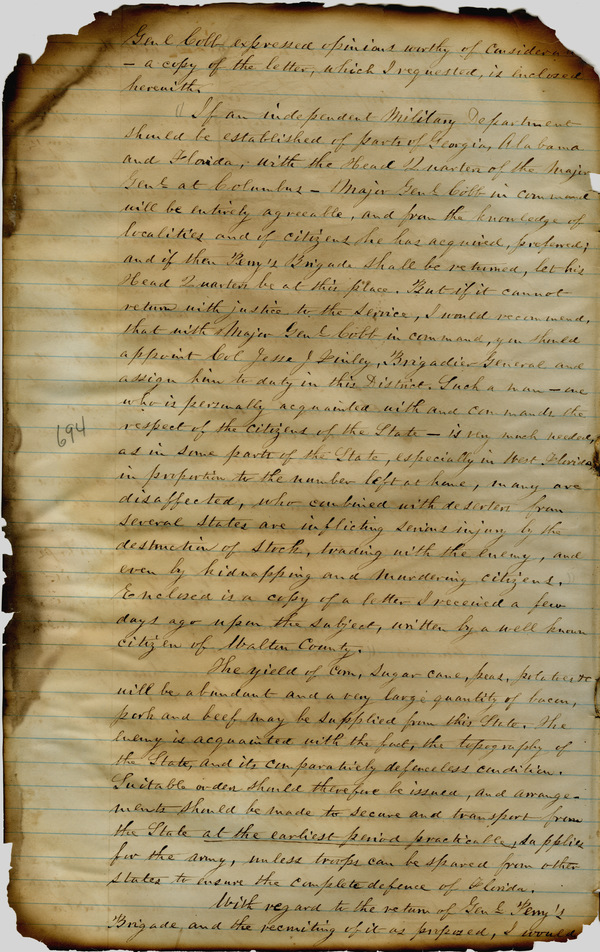 Genl Cobb expressed opinions worthy of considera
– a copy of the letter, which I requested, is inclosed
herewith.
If an independent Military Department
should be established of parts of Georgia, Alabama
and Florida, with the Head Quarters of the Major
Genl at Columbus – Major Genl Cobb in command
will be entirely agreeable, and from the knowledge of
localities and of citizens he has acquired, prefered;
and if then Perry's Brigade shall be returned, let his
Head Quarters be at this place. But if it cannot
return with justice to the service, I would recommend,
that with Major Genl Cobb in command, you should
appoint Col Jesse J Finley, Brigadier General and
assign him to duty in this District. Such a man – one
who is personally acquainted with and commands the
respect of the citizens of the State – is very much needed,
as in some parts of the State, especially in West Florida,
in proportion to the number left at home, many are
disaffected, who combined with deserters from
several states are inflicting serious injury by the
destruction of stock, trading with the enemy, and
even by kidnapping and murdering citizens.
Enclosed is a copy of a letter I received a few
days ago upon the subject, written by a well known
citizen of Walton County.
694
The yield of corn, sugar cane, peas, potatoes &c
will be abundant and a very large quantity of bacon,
pork and beef may be supplied from this State. The
enemy is acquainted with the fact, the topography of
the State, and its comparatively defenceless condition.
Suitable orders should therefore be issued, and arrange-
ments should be made to secure and transport from
the State at the earliest period practicable, supplies
for the army, unless troops can be spared from other
states to ensure the complete defence of Florida.
With regard to the return of Genl Perry's
Brigade and the recruiting of it as proposed, I would